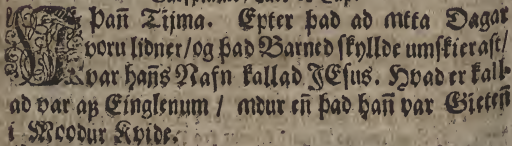 Þan̄ Tijma. Epter þad ad átta Dagar
voru lidner/og þad Barned skyllde umskierast/
var han̄s Nafn kallad JEsus. Hvad er kall-
ad var aƿ Einglenum / ádur en̄ þad han̄ var Gieten̄
i Moodur Kvide.